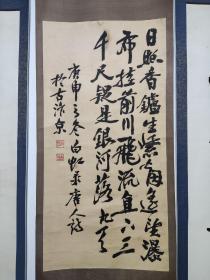 日照香鑪生紫烟遥望瀑
布挂前川飛流直下三
千尺疑是銀河落九天
庚申之冬白虹录唐人詩
於古汴京